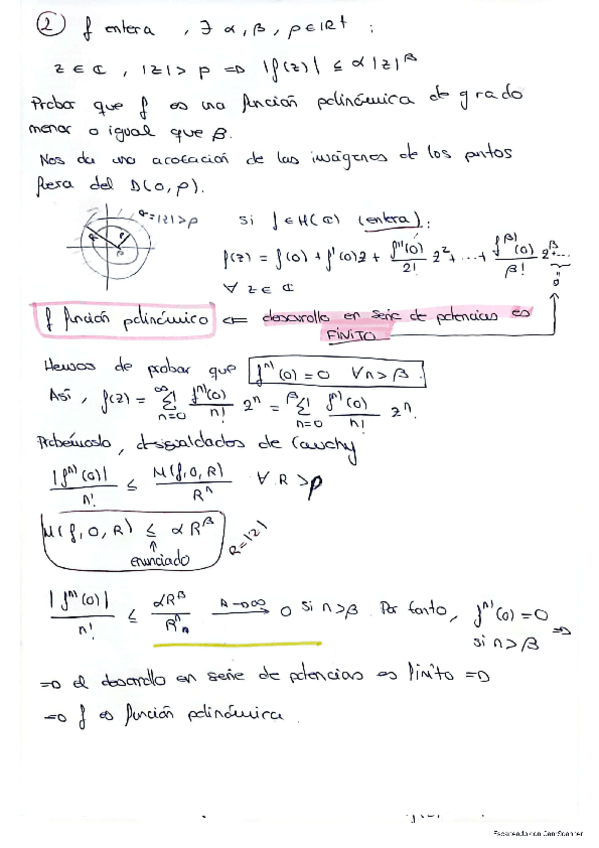 ② f entera , ∃ α, β, ρ ∈ ℝ⁺ :
z ∈ ℂ , |z| > ρ ⇒ |f(z)| ≤ α|z|^β
Probar que f es una función polinómica de grado
menor o igual que β.
Nos da una acotación de las imágenes de los puntos
fuera del D(0, ρ).
R=|z|>ρ
si f ∈ H(ℂ) (entera):
f(z) = f(0) + f'(0)z + f''(0)/2! z² + ... + f^β)(0)/β! z^β + ...
=0
∀ z ∈ ℂ
f función polinómica ⇐ desarrollo en serie de potencias es
FINITO
Hemos de probar que f^n)(0) = 0 ∀n > β.
Así, f(z) = Σ_{n=0}^{∞} f^n)(0)/n! z^n = Σ_{n=0}^{β} f^n)(0)/n! z^n.
Probémoslo, desigualdades de Cauchy
|f^n)(0)|/n! ≤ M(f,0,R)/R^n ∀ R > ρ
M(f,0,R) ≤ α R^β
R=|z|
↑
enunciado
|f^n)(0)|/n! ≤ αR^β/R^n —R→∞→ 0 si n>β. Por tanto, f^n)(0) = 0
si n>β ⇒
⇒ el desarrollo en serie de potencias es finito ⇒
⇒ f es función polinómica.
Escaneado con CamScanner